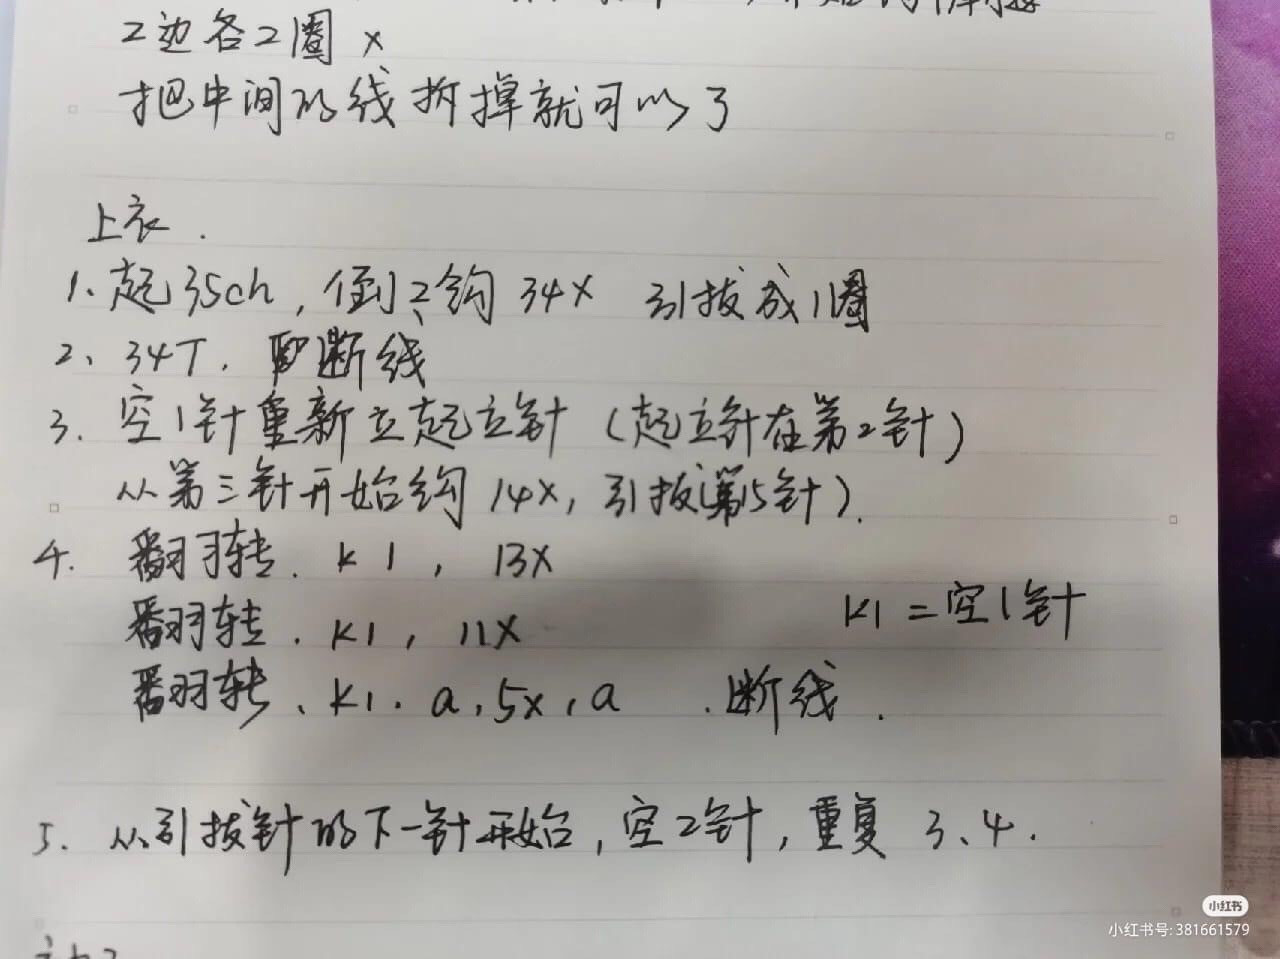 2边各2圈 x
把中间的线拆掉就可以了
上衣.
1、起35ch,倒2钩 34x 引拔成1圈
2、34T. 断线
3. 空1针重新立起立针(起立针在第2针)
从第三针开始钩 14x, 引拔(第15针).
4. 翻转. k1, 13x
翻转. k1, 11x
k1=空1针
翻转、k1. a, 5x, a .断线.
5. 从引拔针的下一针开始,空2针,重复 3、4.
小红书
小红书号: 381661579